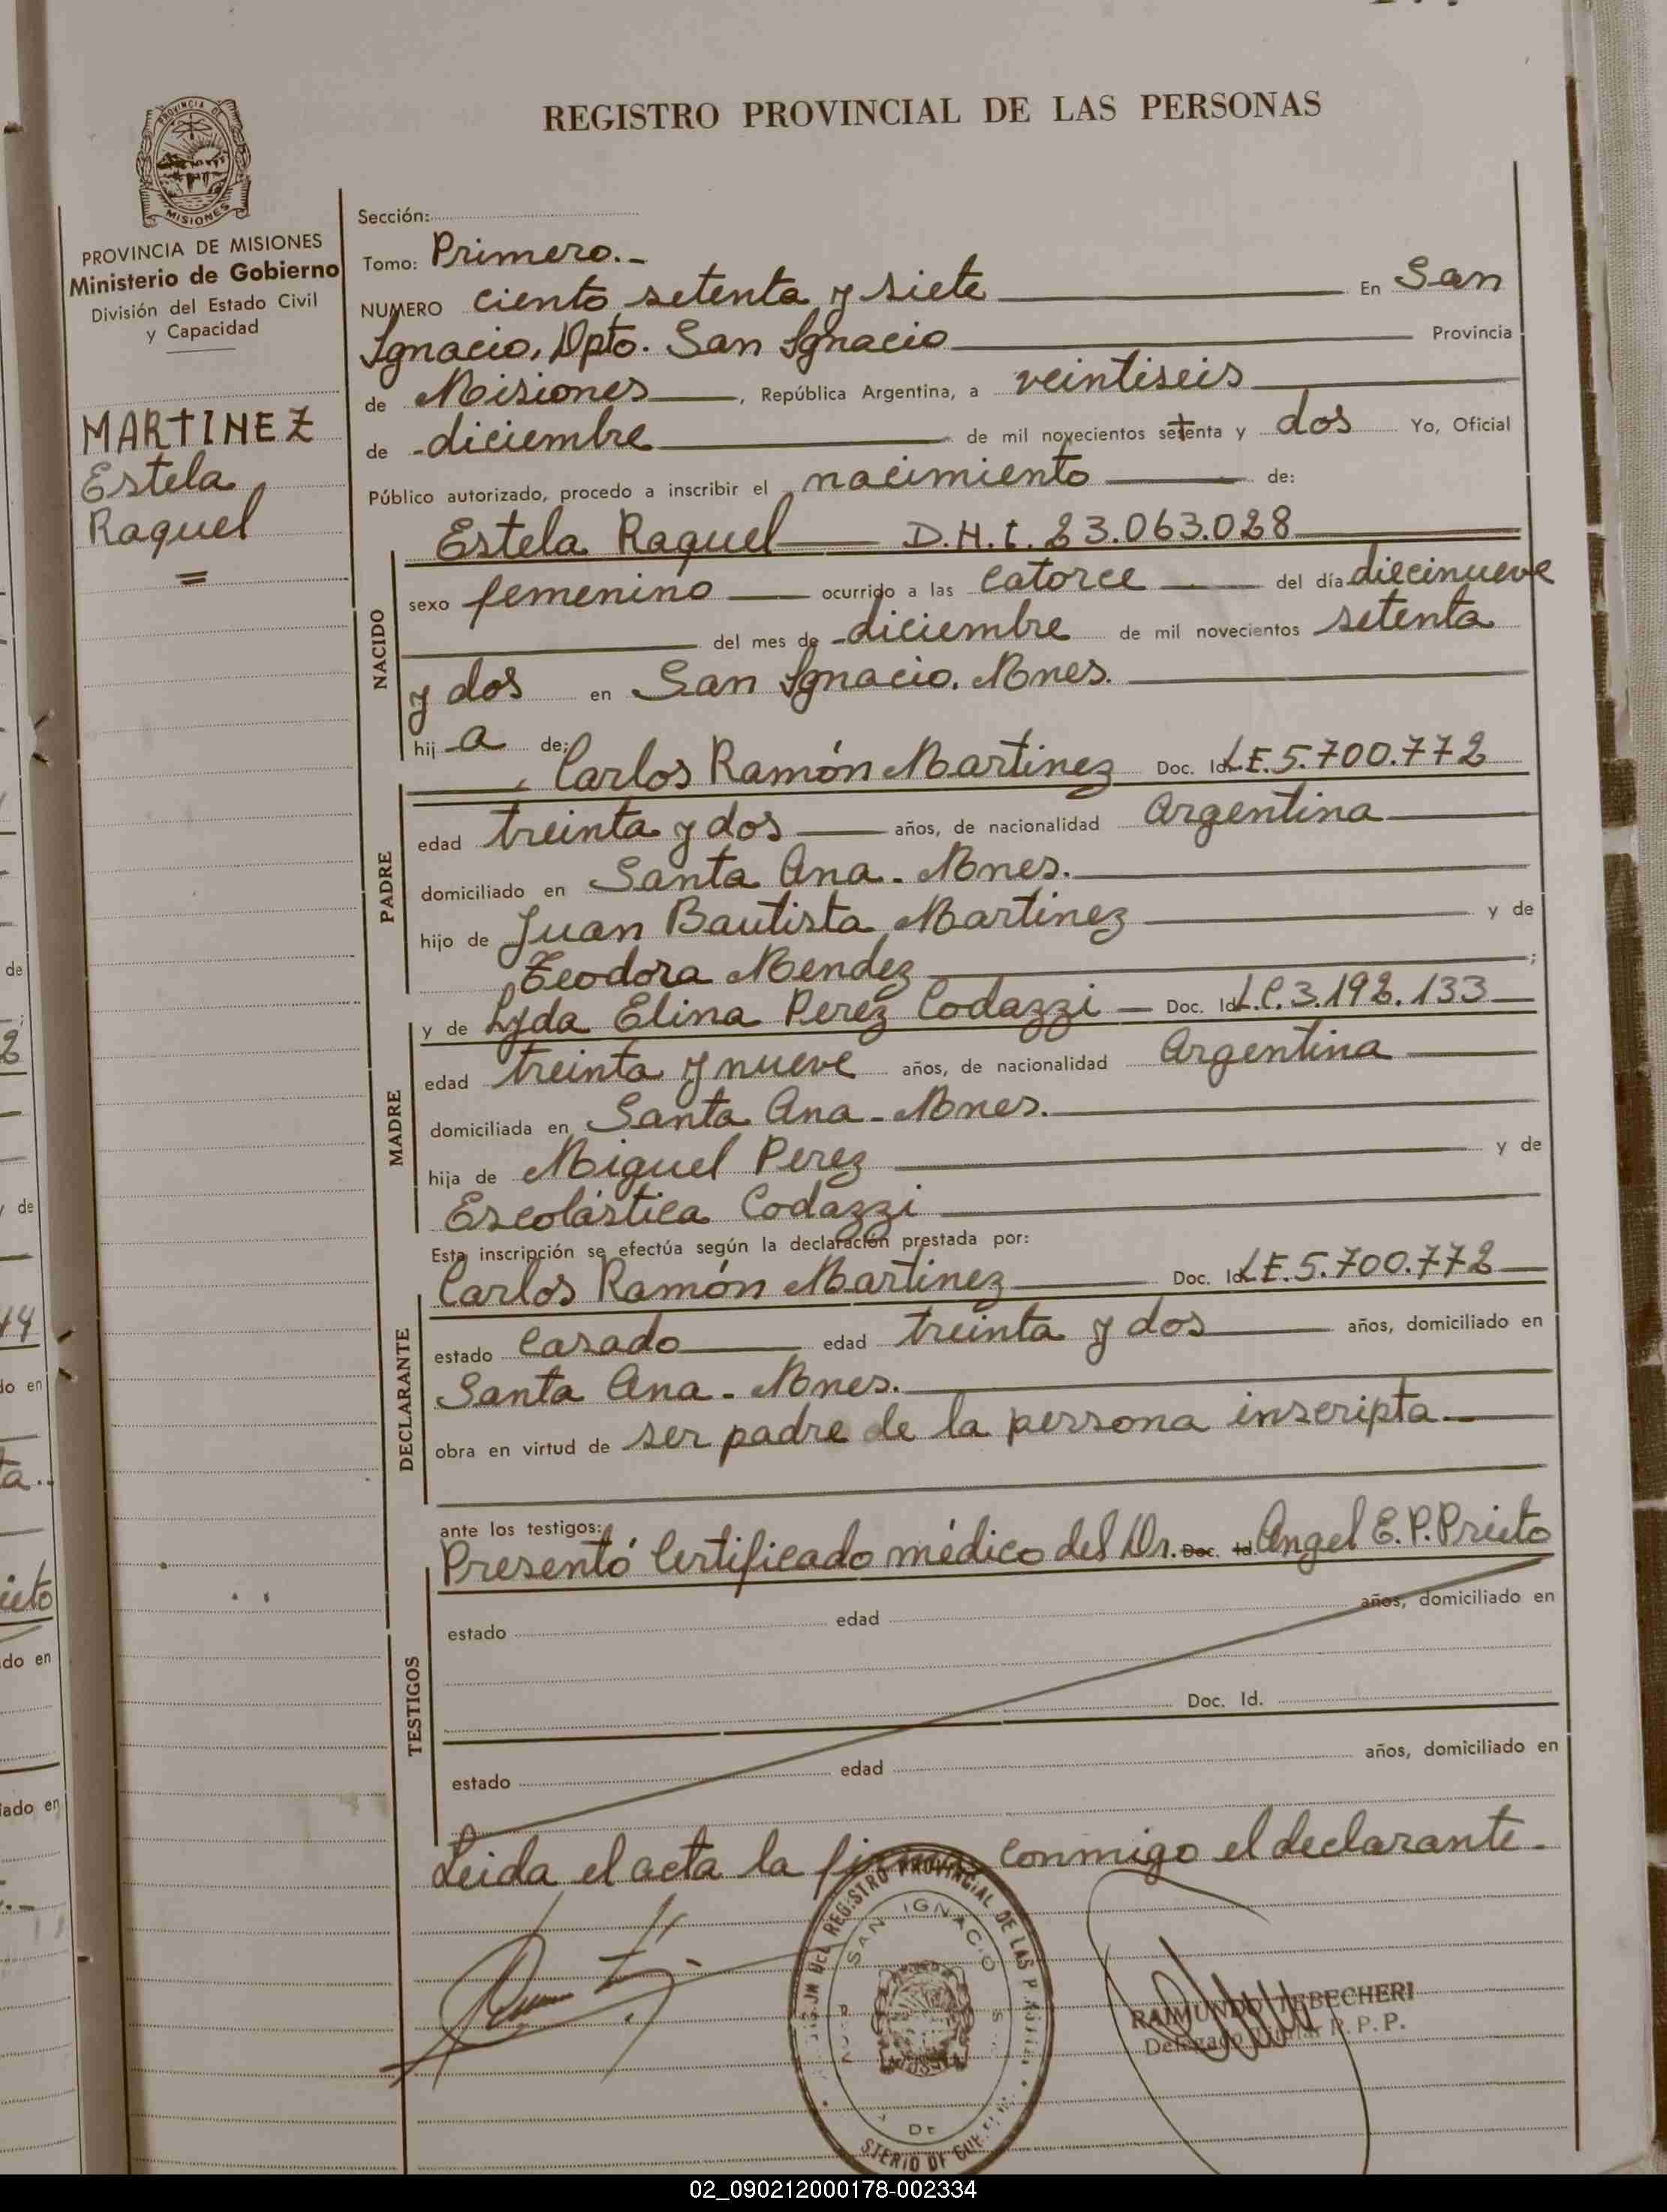 REGISTRO PROVINCIAL DE LAS PERSONAS
PROVINCIA DE
MISIONES
PROVINCIA DE MISIONES
Ministerio de Gobierno
División del Estado Civil
y Capacidad
MARTINEZ
Estela
Raquel
=
Sección:
Tomo: Primero.-
NUMERO ciento setenta y siete En San
Ignacio, Dpto. San Ignacio Provincia
de Misiones, República Argentina, a veintiseis
de diciembre de mil novecientos setenta y dos Yo, Oficial
Público autorizado, procedo a inscribir el nacimiento de:
Estela Raquel D.N.I. 23.063.028
NACIDO
sexo femenino ocurrido a las catorce del día diecinueve
del mes de diciembre de mil novecientos setenta
y dos en San Ignacio. Mnes.
hij a de:
Carlos Ramón Martinez Doc. Id. L.E. 5.700.772
PADRE
edad treinta y dos años, de nacionalidad Argentina
domiciliado en Santa Ana - Mnes.
hijo de Juan Bautista Martinez y de
Teodora Mendez ;
y de Lyda Elina Perez Codazzi Doc. Id. L.C. 3.192.133
MADRE
edad treinta y nueve años, de nacionalidad Argentina
domiciliada en Santa Ana - Mnes.
hija de Miguel Perez y de
Escolástica Codazzi
Esta inscripción se efectúa según la declaración prestada por:
Carlos Ramón Martinez Doc. Id. L.E. 5.700.772
DECLARANTE
estado casado edad treinta y dos años, domiciliado en
Santa Ana - Mnes.
obra en virtud de ser padre de la persona inscripta
ante los testigos:
Presentó Certificado médico del Dr. Doc. Id. Angel E. P. Prieto
TESTIGOS
estado edad años, domiciliado en
Doc. Id.
estado edad años, domiciliado en
Leida el acta la firma conmigo el declarante.
DEL REGISTRO PROVINCIAL DE LAS
SAN IGNACIO
DE
RAIMUNDO TEBECHERI
Delegado Titular R. P. P.
02_090212000178-002334